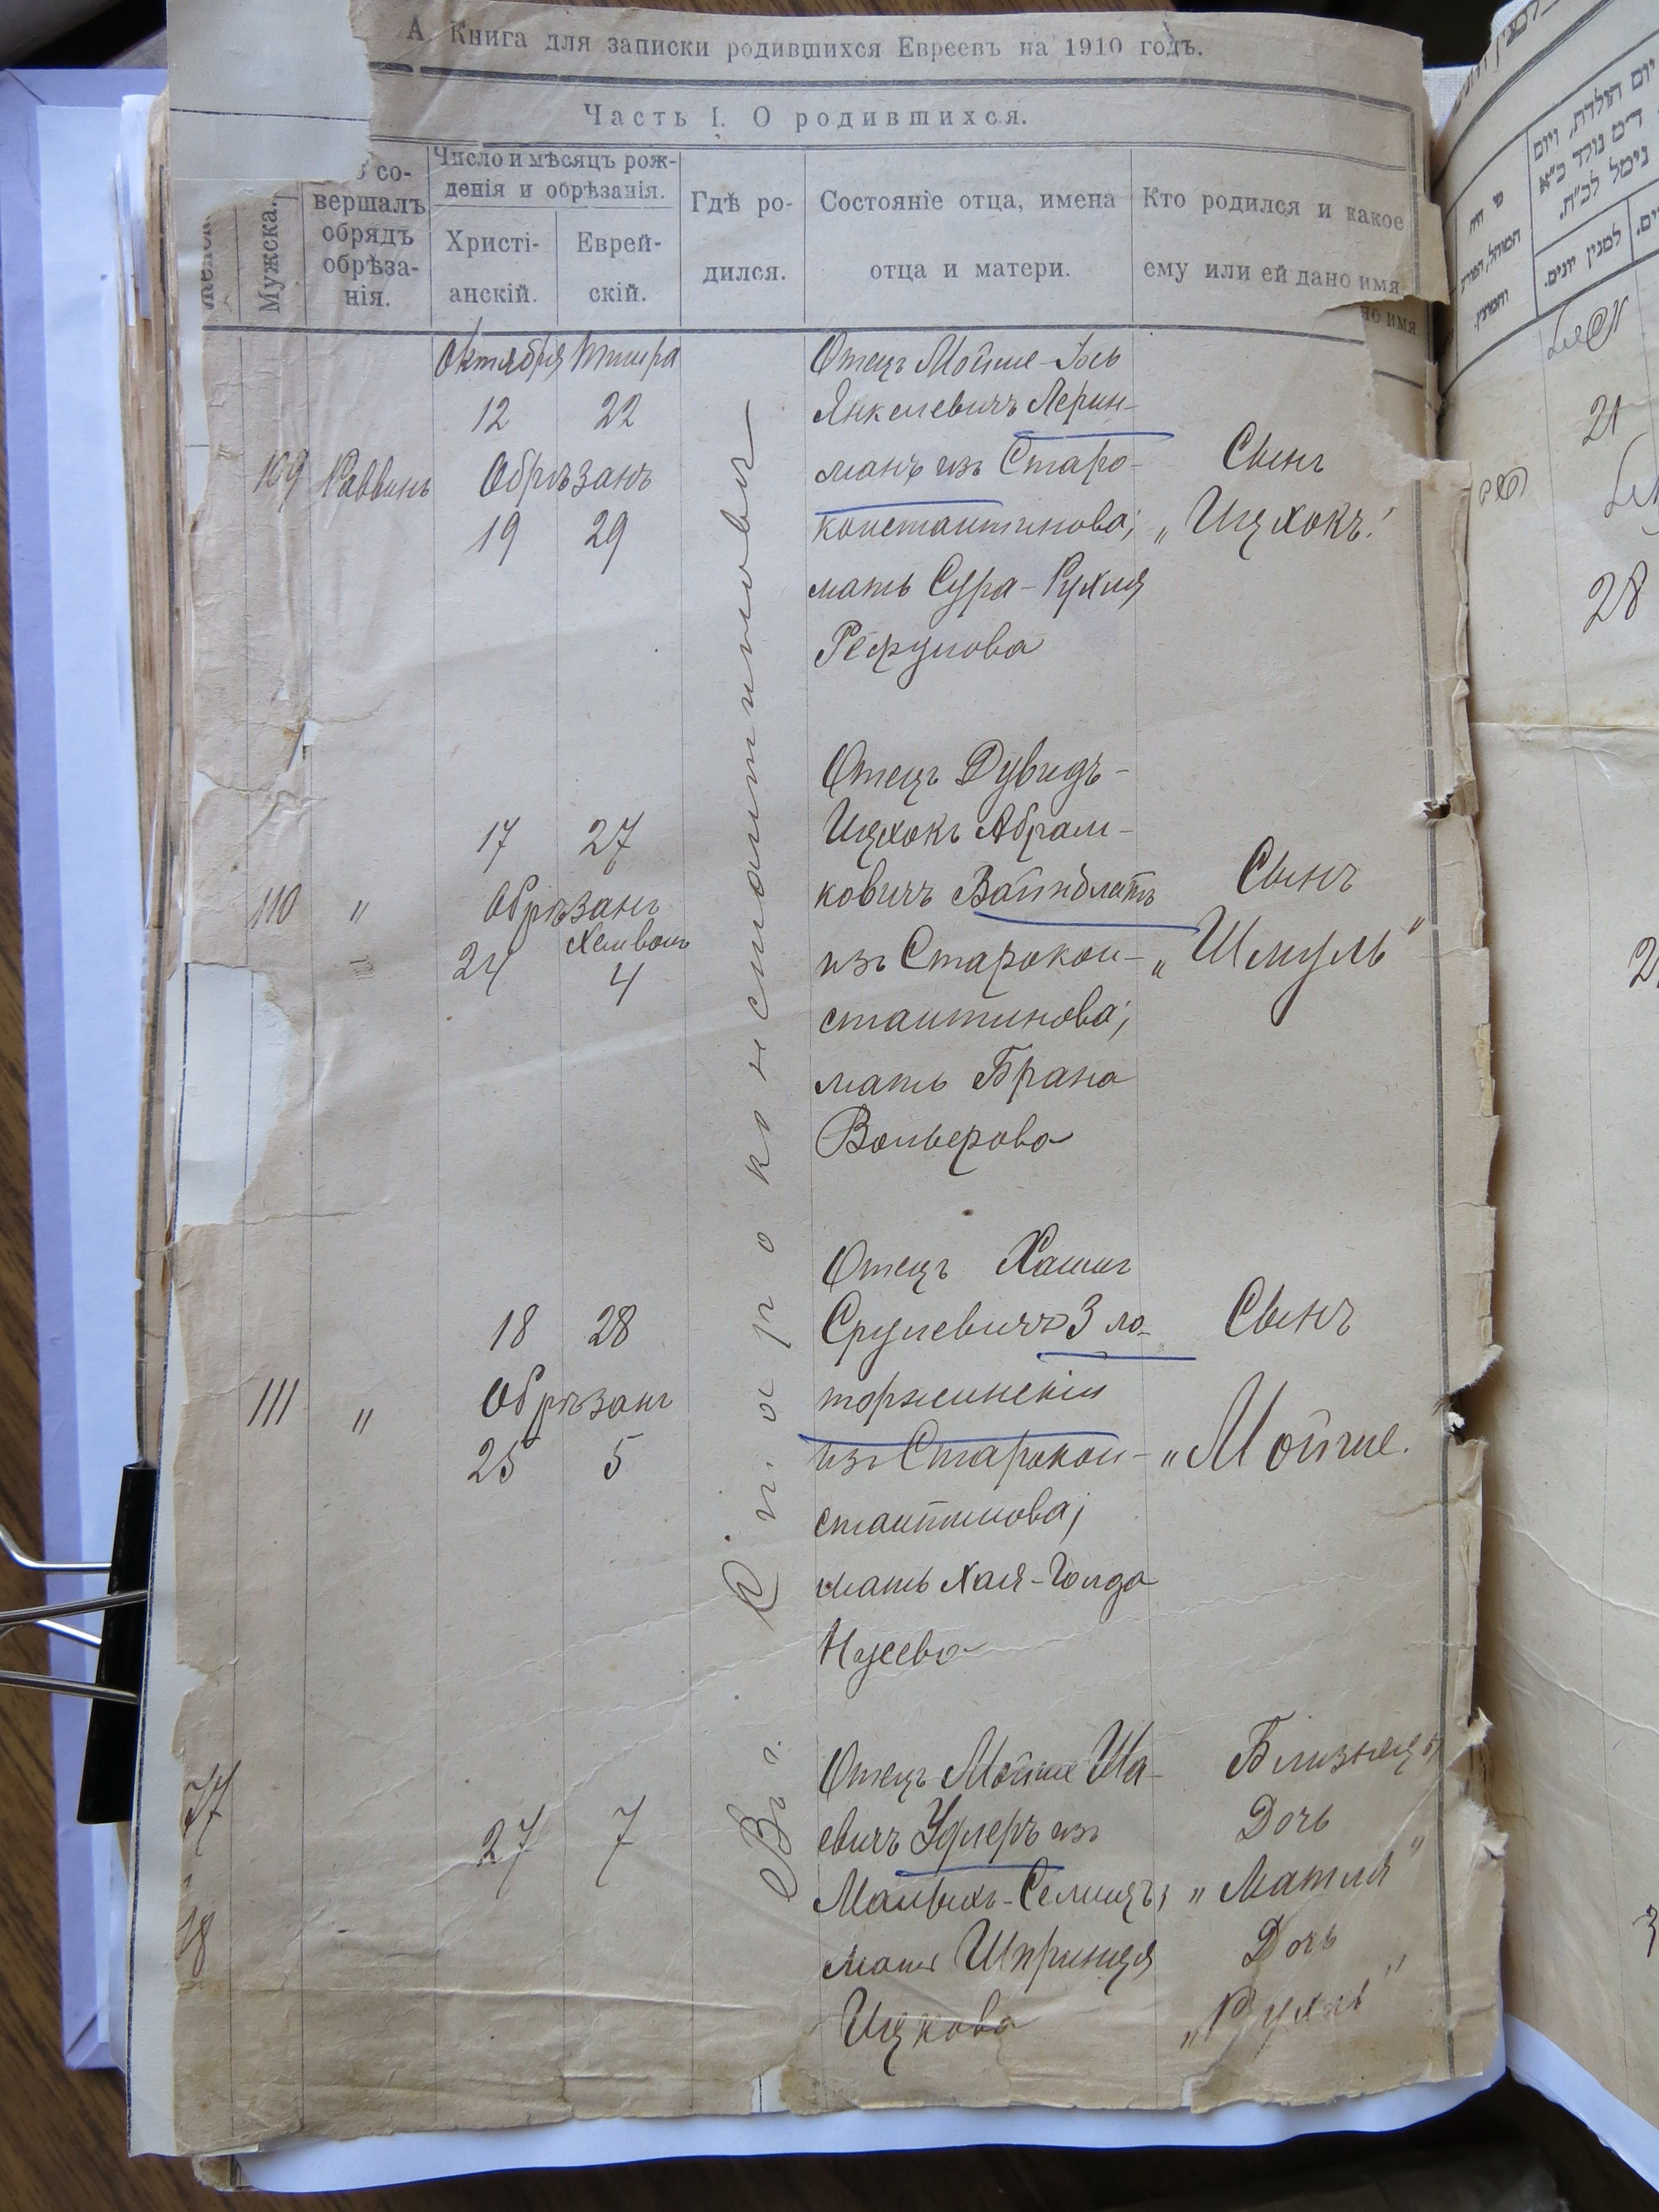 А. Книга для записки родившихся Евреевъ на 1910 годъ.
Часть I. О родившихся.
Мужска.
со-
вершалъ
обрядъ
обрѣза-
нія.
Число и мѣсяцъ рож-
денія и обрѣзанія.
Христі-
анскій.
Еврей-
скій.
Гдѣ ро-
дился.
Состояніе отца, имена
отца и матери.
Кто родился и какое
ему или ей дано имя
но имя
Въ г. Староконстантиновѣ
Октября Тишра
12 22
109 Раввинъ Обрѣзанъ
19 29
Отецъ Мойше-Іось
Янкелевичъ Лерин-
манъ изъ Старо-
константинова;
мать Сура-Рухля
Сынъ
„Ицхокъ"
17 27
110 „ Обрѣзанъ
Хешвонъ
24 4
Отецъ Дувидъ-
Ицхокъ Абрам-
ковичъ Вайнблатъ
изъ Старокон-
стантинова;
мать Брана
Вольфова
Сынъ
„Шмуль"
18 28
111 „ Обрѣзанъ
25 5
Отецъ Хаимъ
Срулевичъ Зло-
торжинскій
изъ Старокон-
стантинова;
мать Хая-Голда
Нусева
Сынъ
„Мойше.
77
27 7
78
Отецъ Мойше Ша-
евичъ Удлеръ изъ
Малыхъ-Селищъ;
мать Шпринця
Ицкова
Близнецы
Дочь
„Матля"
Дочь
„Рухль"
21
28